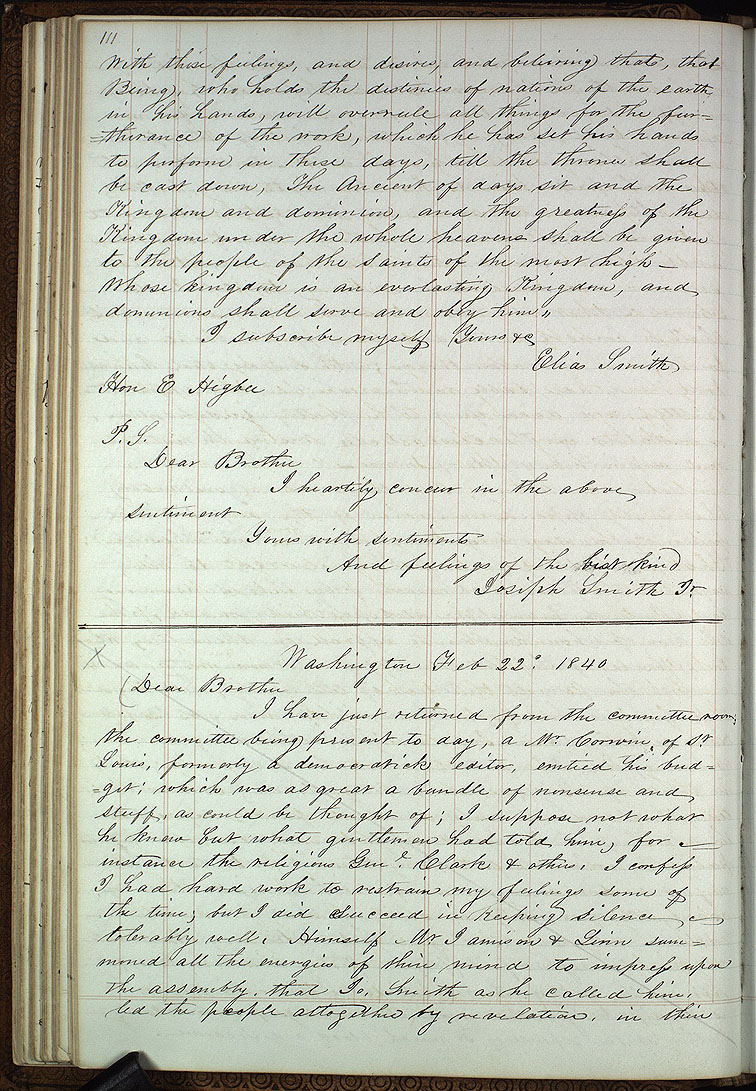 111
With these feelings, and desires, and believing thats, that
Being, who holds the destinies of nations of the earth
in his hands, will overrule all things for the fur=
=therance of the work, which he has set his hands
to perform in these days, till the thrones shall
be cast down, The Ancient of days sit and the
Kingdom and dominion, and the greatness of the
Kingdom under the whole heavens shall be given
to the people of the saints of the most high—
Whose kingdom is an everlasting Kingdom, and
dominions shall serve and obey him,,
I subscribe myself Yours &c
Elias Smith
Hon E Higbee
P. S.
Dear Brother
I heartily concur in the above
sentiment
Yours with sentiments
And feelings of the best kind
Joseph Smith Jr
X
Washington Feb 22d. 1840
(Dear Brother
I have just returned from the committee room,
the committee being present to day, a Mr Corwin, of St
Louis, formerly a democratick editor, emtied his bud=
=get; which was as great a bundle of nonsense and
stuff, as could be thought of; I suppose not what
he knew but what gentlemen had told him, for
instance the religious Genl. Clark & others, I confess
I had hard work to restrain my feelings some of
the time; but I did succeed in keeping silence
tolerably well. Himself Mr Jamison & Linn sum=
moned all the energies of their mind to impress upon
the assembly. that Jo. Smith as he called him,
led the people altogether by revelation, in their